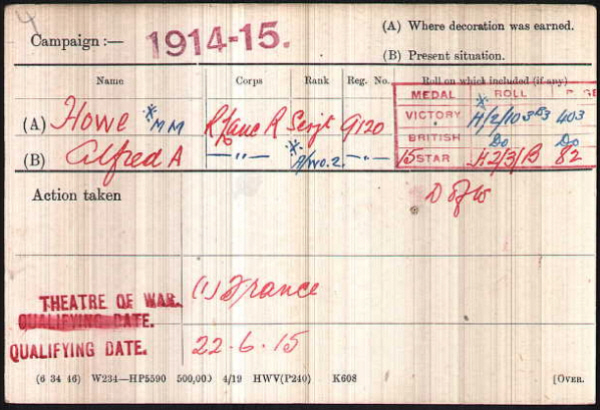 Campaign :— 1914-15.
(A) Where decoration was earned.
(B) Present situation.
Name Corps Rank Reg. No. Roll on which included (if any)
MEDAL ROLL PAGE
(A) Howe *MM R Lanc R Serjt 9120
VICTORY H/2/103 403
BRITISH Do Do
(B) Alfred A —"— *A/WO.2. —"—
15 STAR H2/3/B 82
Action taken
D of W
THEATRE OF WAR. (1) France
QUALIFYING DATE.
QUALIFYING DATE. 22.6.15
(6 34 46) W234—HP5590 500,000 4/19 HWV(P240) K608 [OVER.